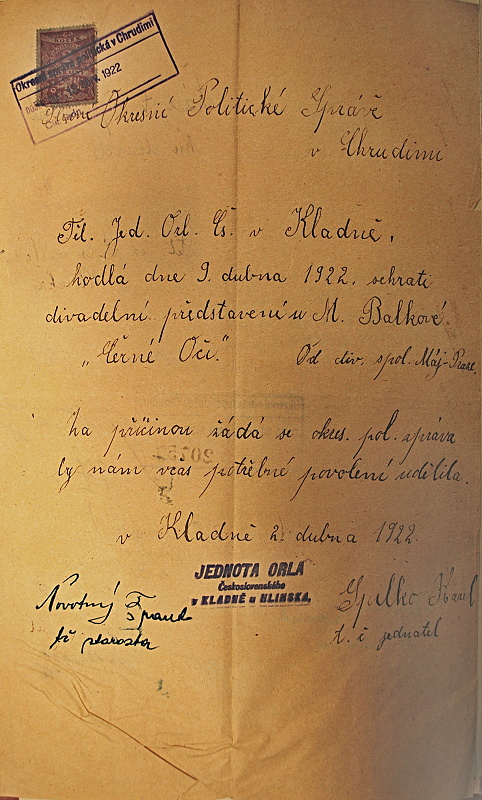 Okresní politická v Chrudimi
1922
Okresní Politické Správě
v Chrudimi
Těl. Jed. Orl. Čs. v Kladně,
hodlá dne 9. dubna 1922. sehrati
divadelní představení u M. Balkové.
„Černé Oči." Od div. spol. Máj-Praze.
Za příčinou žádá se okres. pol. správa
by nám včas potřebné povolení udělila.
v Kladně 2. dubna 1922.
JEDNOTA ORLA
Československého
v KLADNĚ u HLINSKA.
Novotný Frant
starosta
Karel
t. č jednatel